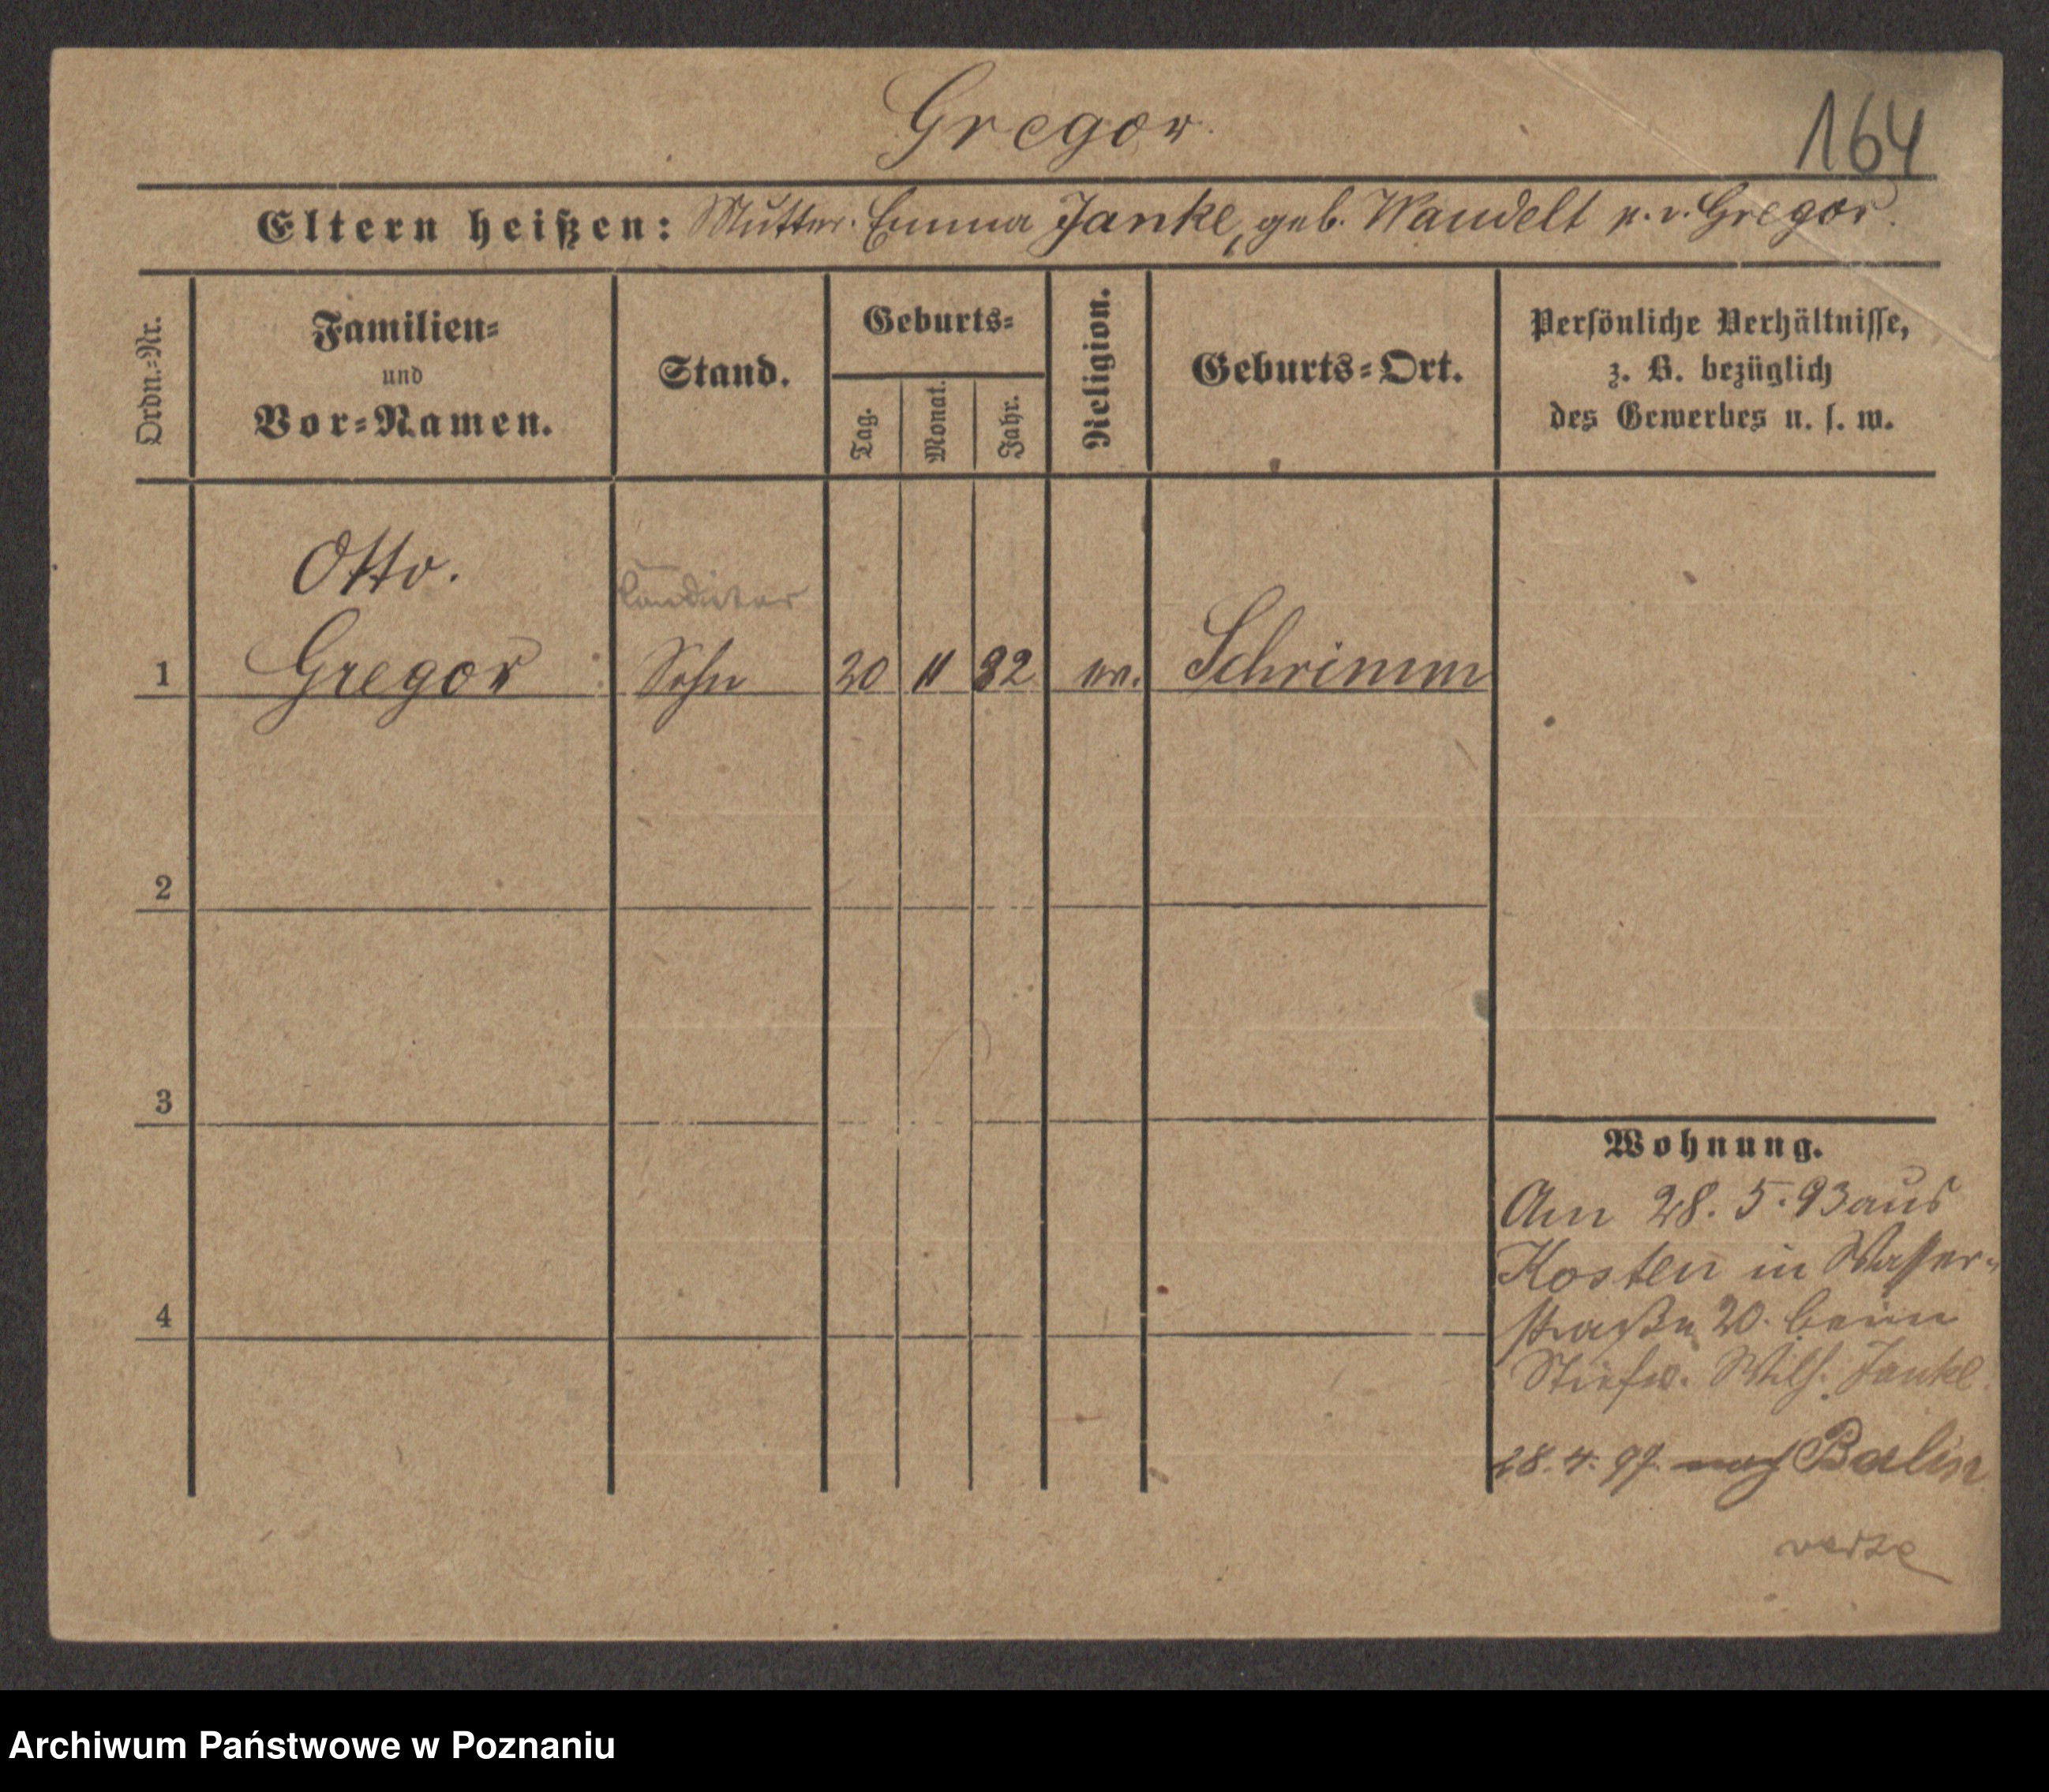 Gregor.
164
Eltern heißen: Mutter. Emma Janke, geb. Wandelt v. v. Gregor.
Ordn.=Nr.
Familien=
und
Vor=Namen.
Stand.
Geburts=
Tag.
Monat.
Jahr.
Religion.
Geburts=Ort.
Persönliche Verhältnisse,
z. B. bezüglich
des Gewerbes u. s. w.
Otto.
1 Gregor Sohn 20 11 82 ev. Schrimm
2
3
4
Wohnung.
Am 28. 5. 93 aus
Kosten in Wasser=
straße 20. beim
Stiefv. Wilh. Janke
28. 4. 97. nach Berlin
Archiwum Państwowe w Poznaniu